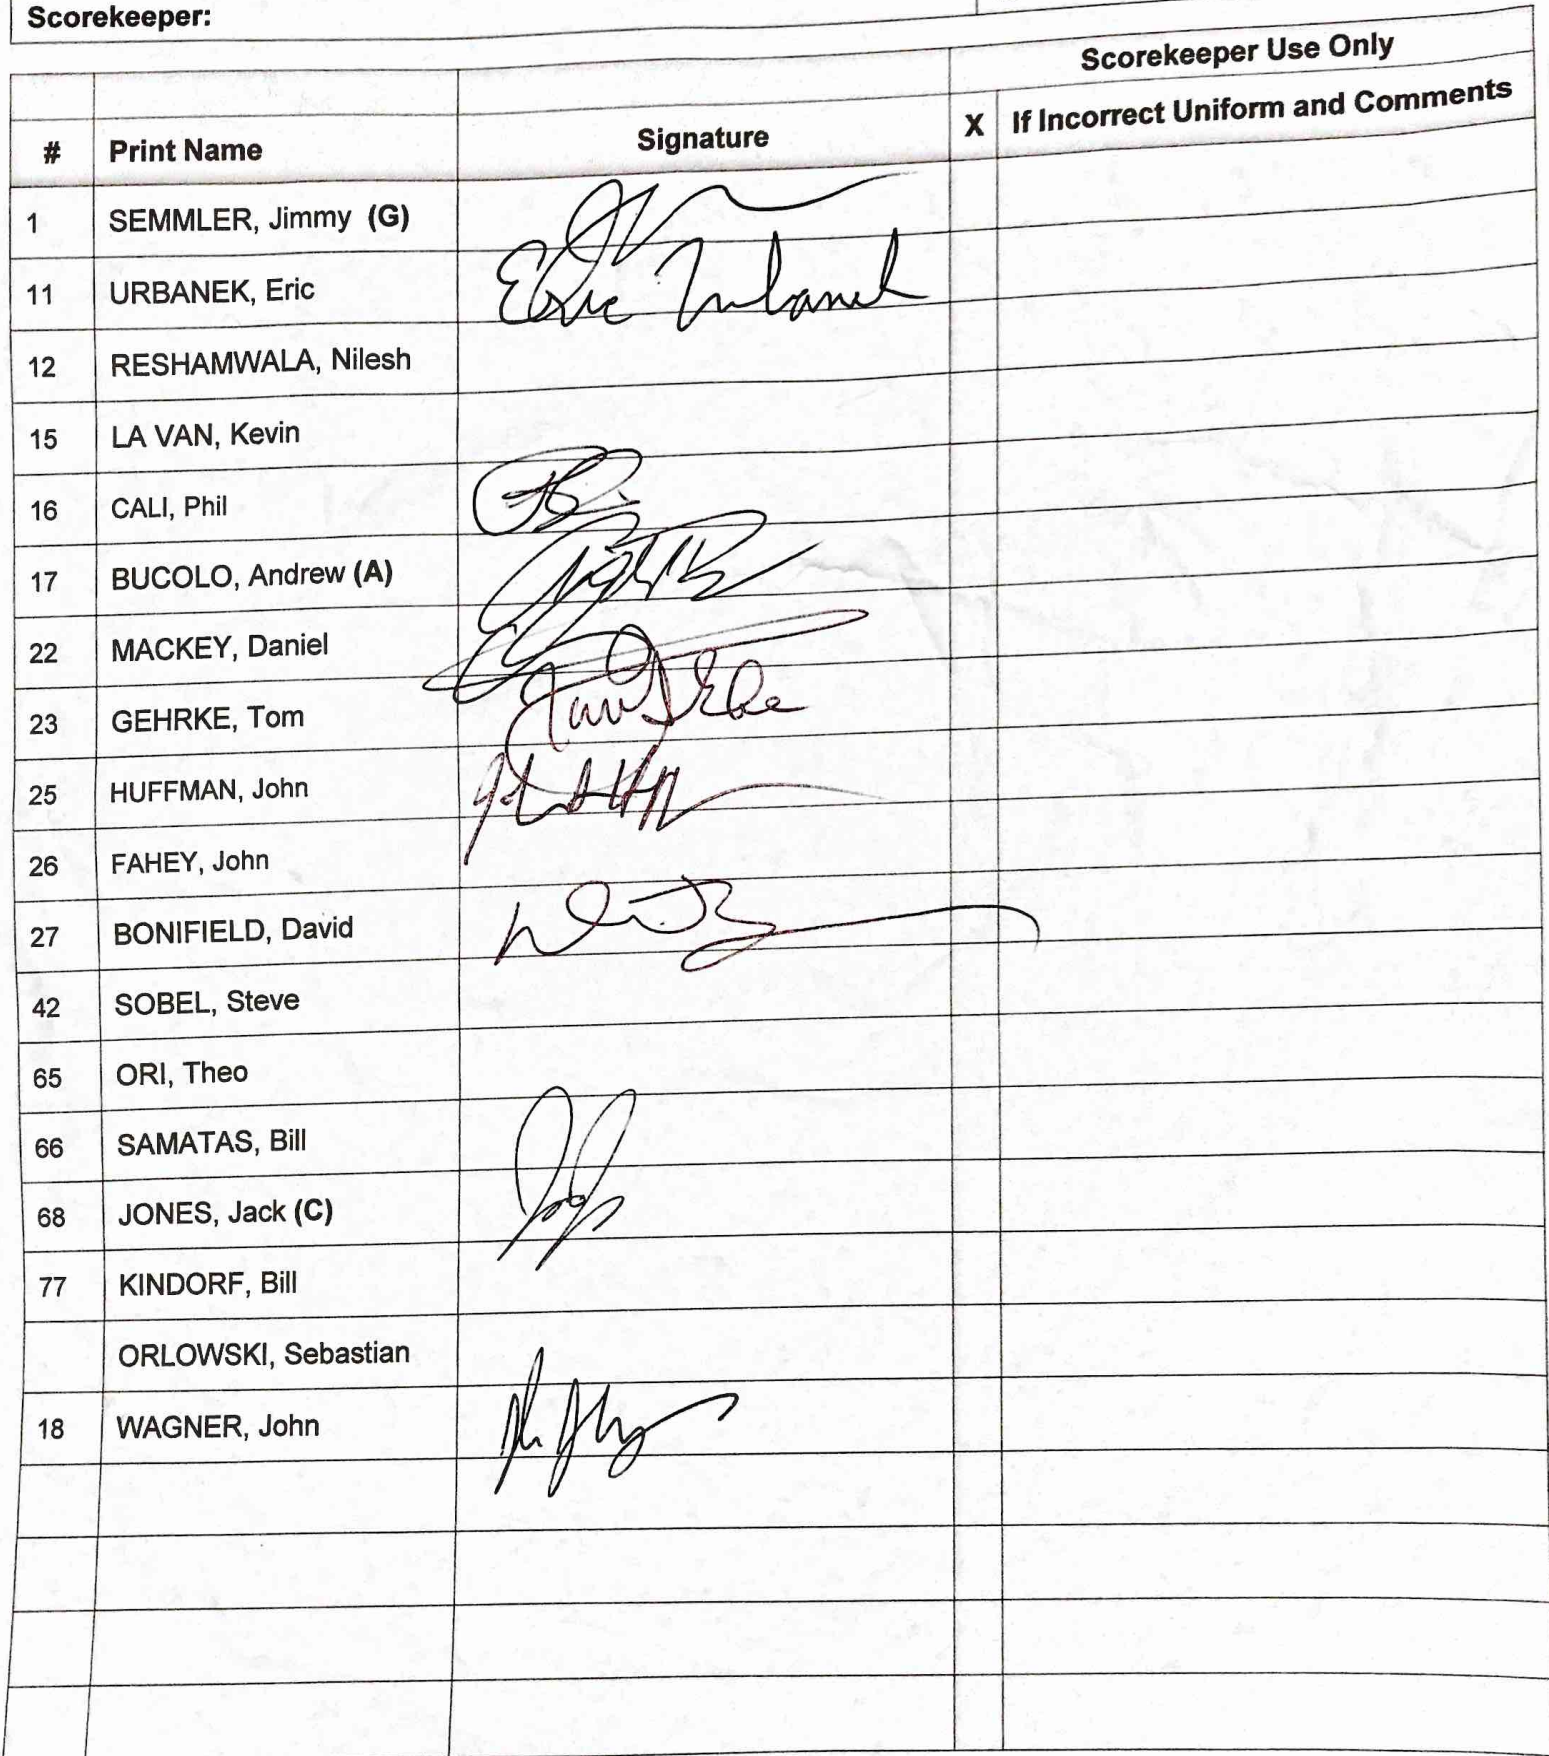 Scorekeeper:
Scorekeeper Use Only
# Print Name Signature X If Incorrect Uniform and Comments
1 SEMMLER, Jimmy (G)
11 URBANEK, Eric Eric Urbanek
12 RESHAMWALA, Nilesh
15 LA VAN, Kevin
16 CALI, Phil
17 BUCOLO, Andrew (A)
22 MACKEY, Daniel
23 GEHRKE, Tom
25 HUFFMAN, John
26 FAHEY, John
27 BONIFIELD, David
42 SOBEL, Steve
65 ORI, Theo
66 SAMATAS, Bill
68 JONES, Jack (C)
77 KINDORF, Bill
ORLOWSKI, Sebastian
18 WAGNER, John